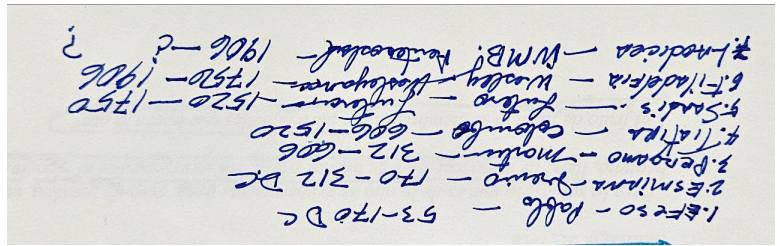 1. Efeso - Pablo — 53-170 DC
2. Esmirna - Ireneo - 170 - 312 D.C.
3. Pergamo - Martin - 312 - 606
4. Tiatira - Colombo - 606 - 1520
5. Sardis. - Lutero - Luterano - 1520 - 1750
6. Filadelfia - Wesley - Wesleyanos - 1750 - 1906
7. Laodicea - WMB. Pentecostal - 1906 - ¿ ?